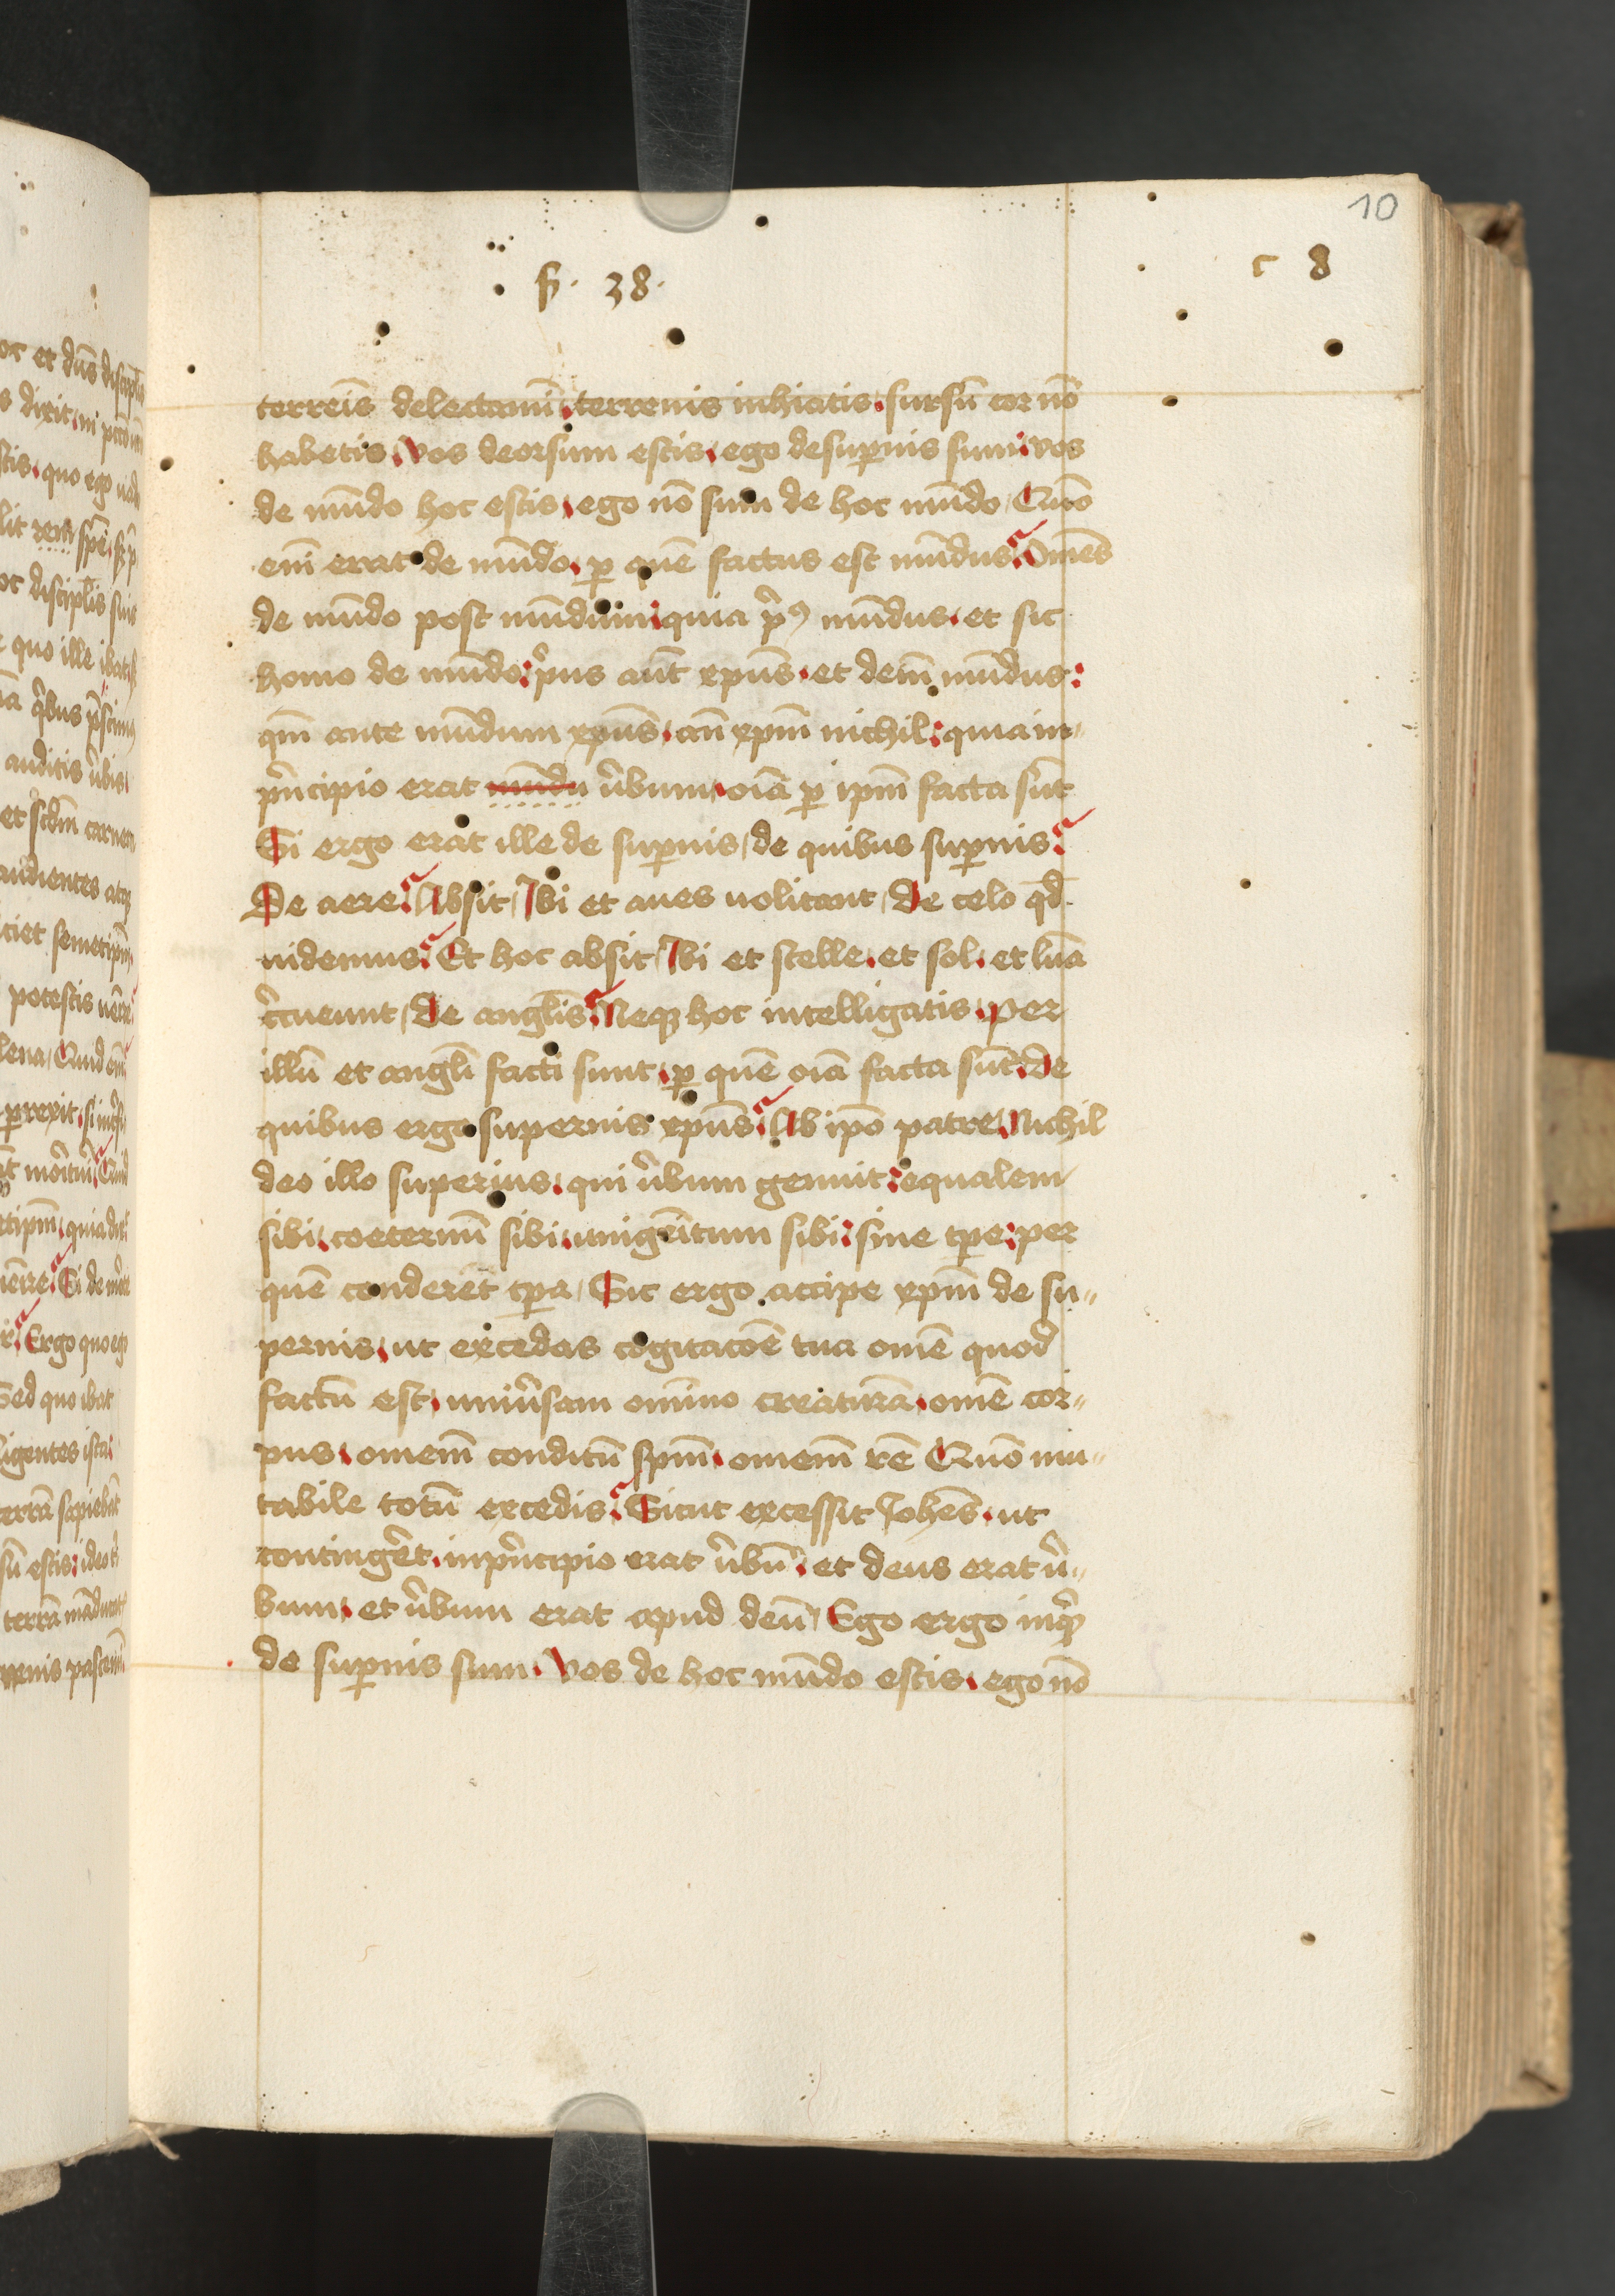 10
c 8
ẜ. 38.
terreīs delectamī. terrenis inhiatis. sursū cor nō
habetis. Vos deorsum estis. ego desup̲nis sum: vos
de mūdo hoc estis. ego nō sum de hoc mūdo. Quō
enī erat de mūdo. p̲ quē factus est mūdus? Om̄es
de mūdo post mūdum: quia p̄ꝰ mūdus. et sic
homo de mūdo: p̓us aūt xp̄us. et deīn mūdus:
qm̄ ante mūdum xp̄us. an̄ xp̄m nichil: quia in
p̓ncipio erat mūdu v̄bum. oīa p̲ ip̄m facta sūt
Si ergo erat ille de sup̲nis, de quibus sup̲nis?
De aere? Absit, Ibi et aues uolitant, De celo qd̄
uidemus? Et hoc absit, Ibi et stelle. et sol. et luna
c̓cueunt, De angl̄is? Neqꝫ hoc intelligatis. Per
illū et angl̄i facti sunt. p̲ quē oīa facta sūt. De
quibus ergo supernis xp̄us? Ab ip̄o patre, Nichil
deo illo superius. qui v̄bum genuit: equalem
sibi. coeternū sibi. unigēitum sibi: sine tp̄e: per
quē conderet tp̄a, Sic ergo accipe xp̄m de su"
pernis. ut excedas cogitacōe tua om̄e quod
factū est. uniūsam om̄ino creaturā. om̄e cor"
pus. omnem̄ conditū sp̄m. omnem̄ rē Quō mu"
tabile totū excedis? Sicut excessit Joh̄es. ut
conting̓et. in p̓ncipio erat v̄bū. et deus erat v̄"
bum. et v̄bum erat apud deū, Ego ergo inq̓
de sup̲nis sum. Vos de hoc mūdo estis. ego nō